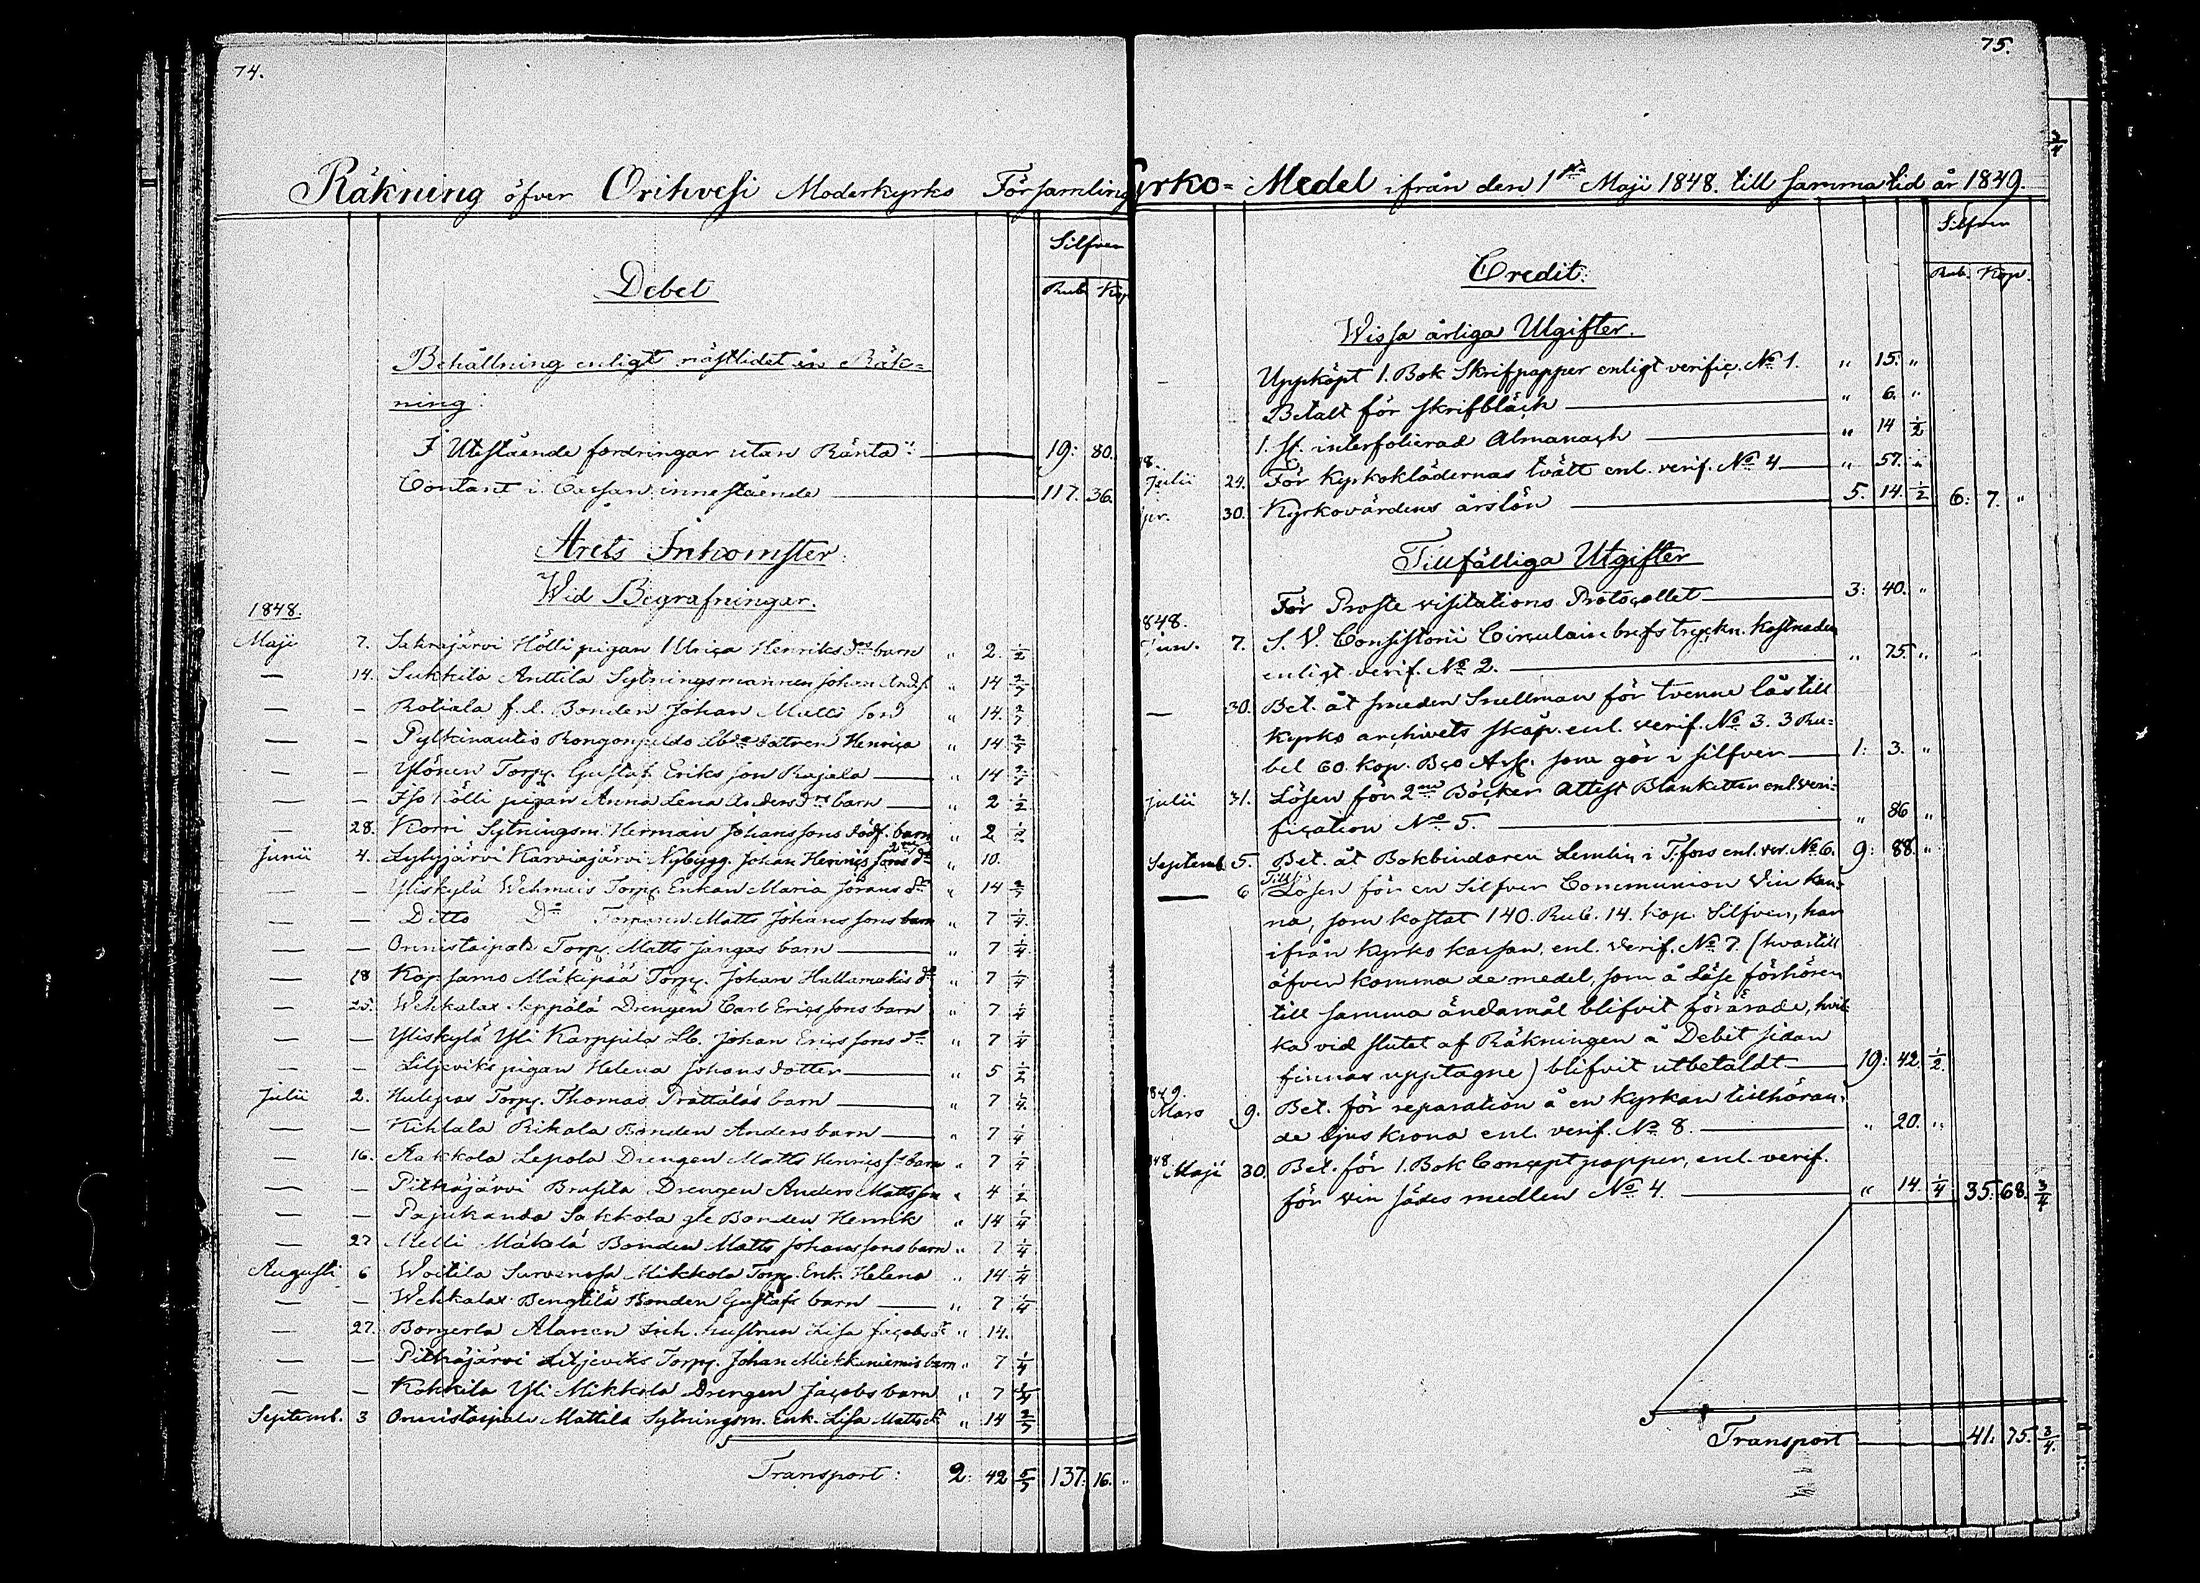 74.
Räkning öfver Orihvesi Moderkyrko Församling
Silfver
Debet
Rub. Kop.
Behållning enligt nästlidet års Räk=
ning:
I Utestående fordringar utan Ränta 19: 80.
Contant i Cassan innestående 117. 36.
Årets Inkomster.
Wid Begrafningar.
1848.
Maji 7. Sakrajärvi Hölli pigan Ulrica Henriks drs barn " 2. 1/2
— 14. Sukkila Anttila Sytningsmannen Johan Anders. " 14 2/7
— — Rotiala f. d. Bonden Johan Matts son " 14. 2/7
— — Pylkinautio dottren Henrica " 14 2/7
— — Ylönen Torp. Gustaf Eriks son Rajala " 14 2/7
— — Iso Hölli pigan Anna Lena Anders drs barn " 2 1/2
— 28. Korri Sytningsm. Herman Johanssons dödf. barn " 2 1/2
Junii 4. Lylyjärvi Karviajärvi Nybygg. Johan Henricssons dr " 10.
— — Yliskylä Wehmais Torp. Enkan Maria Jörans dr " 14 2/7
— — Ditto Do Torparen Matts Johanssons barn " 7 1/4
— — Onnistaipale Torp. Matts Jangas barn " 7 1/4
— 18 Kopsamo Mäkipää Torp. Johan Hallamäkis dr " 7 1/4
— 25. Wehkalax Seppälä Drengen Carl Ericssons barn " 7 1/4
— — Yliskylä Yli Karppila Lb. Johan Ericssons dr " 7 1/4
— — Liljeviks pigan Helena Johansdotter " 5 1/2
Julii 2. Torp. Thomas Prättäläs barn " 7 1/4.
— — Kihlala Rikala Bonden Anders barn " 7 1/4
— 16. Aakkola Lepola Drengen Matts Henrics sr barn " 7 1/4
— — Pitkäjärvi Brusila Drengen Anders Mattsson " 4 1/2
— — Pajukanda Sakkola gle Bonden Henrik " 14 1/4
— 27 Melli Mäkelä Bonden Matts Johanssons barn " 7 1/4
Augusti 6 Woitila Survenosa Mikkola Torp. Enk. Helena " 14 1/4
— — Wehkalax Bengtilä Bonden Gustafs barn " 7 1/4
— 27. Alanen Inh. hustrun Lisa Jacobs dr " 14.
— — Pitkäjärvi Liljeviks Torp. Johan Miekkaniemis barn " 7 1/4
— — Kokkila Yli Mikkola Drengen Jacobs barn " 7 1/4
Septemb. 3 Onnistaipale Mattila Sytningsm. Enk. Lisa Matts dr " 14 2/7
Transport: 2: 42 5/7 137: 16. "
75.
yrko= Medel ifrån den 1sta Maji 1848. till samma tid år 1849.
Silfver
Credit:
Rub. Kop.
Wissa årliga Utgifter.
Uppköpt 1. Bok Skrifpapper enligt verific. No 1. " 15. "
Betalt för skrifbläck " 6. "
1. st. interfolierad Almanach " 14 1/2
8.
Julii 24. För Kyrkoklädernas tvätt enl. verif. No 4 " 57. "
pr. 30. Kyrkovärdens årslön 5. 14. 1/2 6: 7. "
Tillfälliga Utgifter
För Proste visitations Protocollet 3: 40. "
848.
Jun. 7. S. V. Consistorii Circulaire brefs tryckn. kostnader
enligt verif. No 2. " 75. "
— 30. Bet. åt smeden Snellman för tvenne lås till
kyrko archivets skåp. enl. verif. No 3. 3 Ru=
bel 60. kop. Bco Ass. som gör i silfver 1: 3. "
Julii 31. Lösen för 2ne Böcker Attest Blanketter enl. veri=
fication No 5. " 86 "
Septemb. 5. Bet. åt Bokbindaren Lemlin i T:fors enl. ver. No 6. 9: 88. "
— 6 Till: Lösen för en Silfver Communion Vin kan=
na, som kostat 140. Rub. 14. Kop. Silfver, har
ifrån Kyrko kassan, enl. verif. No 7. (hvartill
äfven komma de medel, som å Läse förhören
till samma ändamål blifvit förärade, hvil
ka vid slutet af Räkningen å Debet sidan
finnas upptagne) blifvit utbetaldt 19: 42. 1/2.
849.
Mars 9. Bet. för reparation å en Kyrkan tillhöran=
de ljus krona enl. verif. No 8. " 20. "
848
Maji 30. Bet. för 1. Bok Conceptpapper, enl. verif.
för vin sädes medlen No 4. " 14. 1/4 35. 68. 3/4
Transport 41. 75. 3/4.
3/4